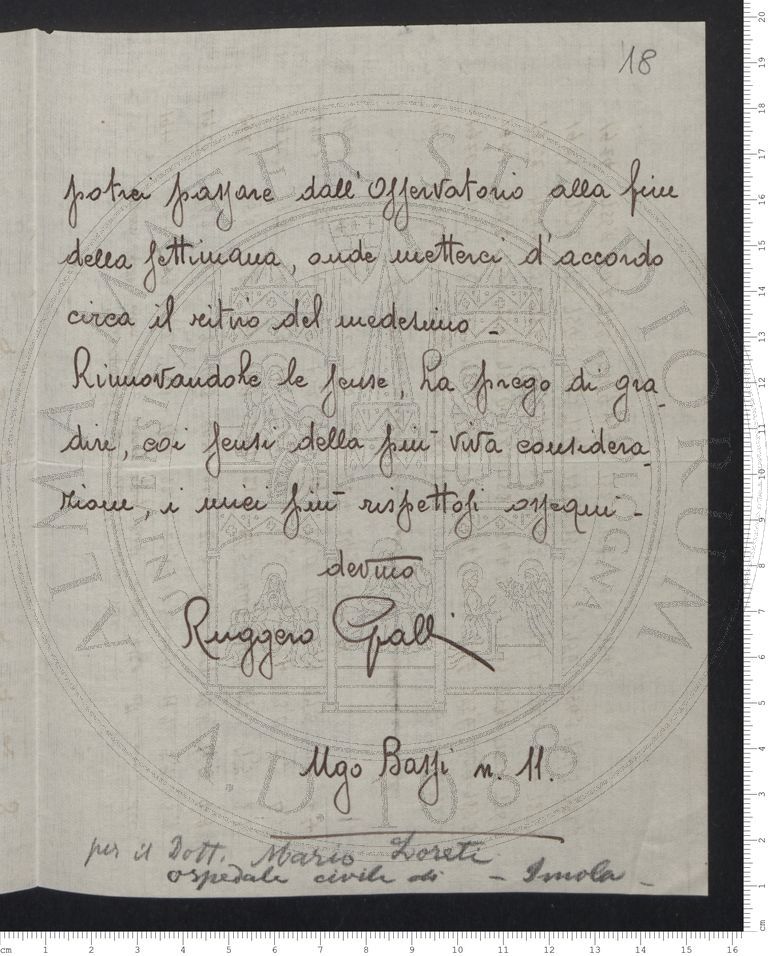 18
potrei passare dall'Osservatorio alla fine
della settimana, onde metterci d'accordo
circa il ritiro del medesimo -
Rinnovandole le scuse, La prego di gra_
dire, coi sensi della più viva considera_
zione, i miei più rispettosi ossequi -
devmo
Ruggero Galli
Ugo Bassi n. 11.
per il Dott. Mario Loreti
ospedale civile di - Imola -
ALMA MATER STUDIORUM
A.D. 1088